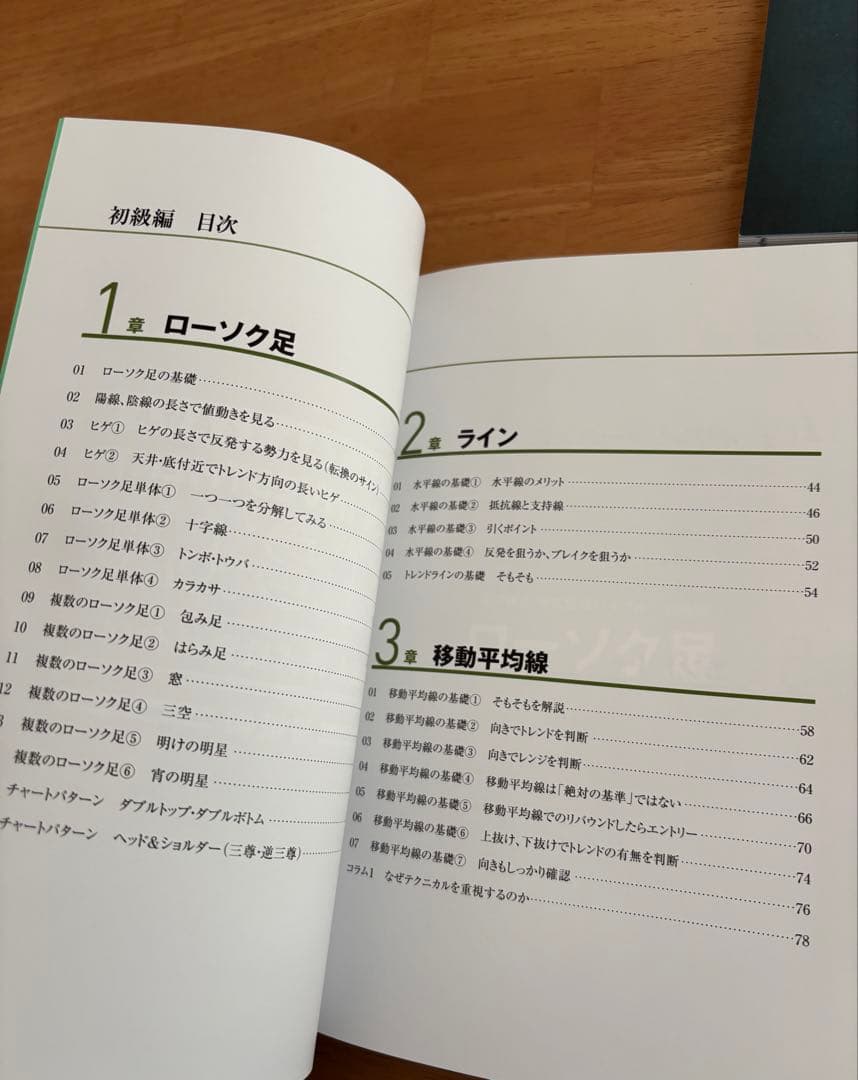 初級編 目次
1章 ローソク足
01 ローソク足の基礎
02 陽線、陰線の長さで値動きを見る
03 ヒゲ① ヒゲの長さで反発する勢力を見る(転換のサイン)
04 ヒゲ② 天井・底付近でトレンド方向の長いヒゲ
05 ローソク足単体① 一つ一つを分解してみる
06 ローソク足単体② 十字線
07 ローソク足単体③ トンボ・トウバ
08 ローソク足単体④ カラカサ
09 複数のローソク足① 包み足
10 複数のローソク足② はらみ足
11 複数のローソク足③ 窓
12 複数のローソク足④ 三空
3 複数のローソク足⑤ 明けの明星
複数のローソク足⑥ 宵の明星
チャートパターン ダブルトップ・ダブルボトム
チャートパターン ヘッド&ショルダー(三尊・逆三尊)
2章 ライン
01 水平線の基礎① 水平線のメリット 44
02 水平線の基礎② 抵抗線と支持線 46
03 水平線の基礎③ 引くポイント 50
04 水平線の基礎④ 反発を狙うか、ブレイクを狙うか 52
05 トレンドラインの基礎 そもそも 54
3章 移動平均線
01 移動平均線の基礎① そもそもを解説 58
02 移動平均線の基礎② 向きでトレンドを判断 62
03 移動平均線の基礎③ 向きでレンジを判断 64
04 移動平均線の基礎④ 移動平均線は「絶対の基準」ではない 66
05 移動平均線の基礎⑤ 移動平均線でのリバウンドしたらエントリー 70
06 移動平均線の基礎⑥ 上抜け、下抜けでトレンドの有無を判断 74
07 移動平均線の基礎⑦ 向きもしっかり確認 76
コラム1 なぜテクニカルを重視するのか 78